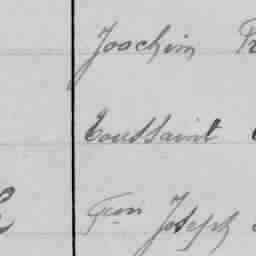 Joachim
Toussaint
Fcon Joseph